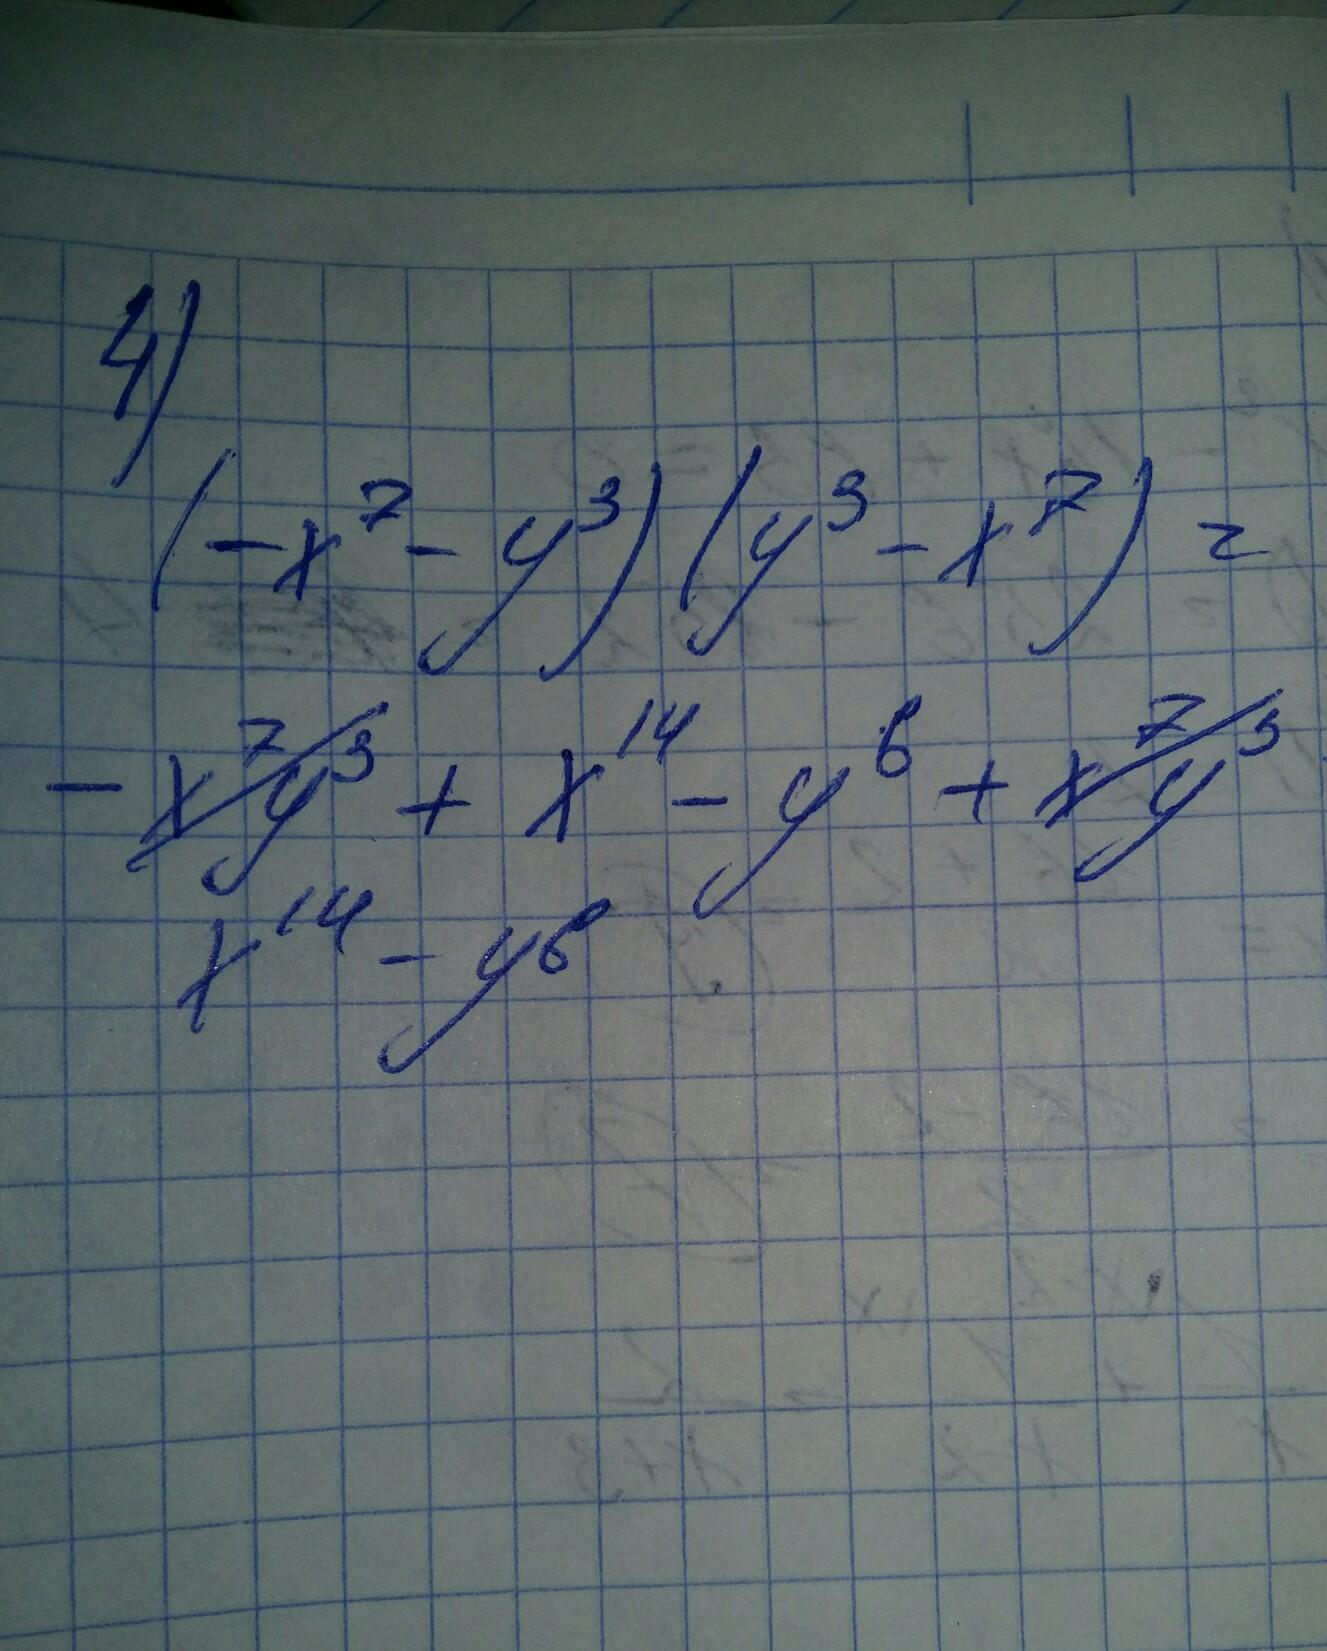 4)
(-x⁷ - y³)(y³ - x⁷) =
- x⁷y³ + x¹⁴ - y⁶ + x⁷y³
x¹⁴ - y⁶